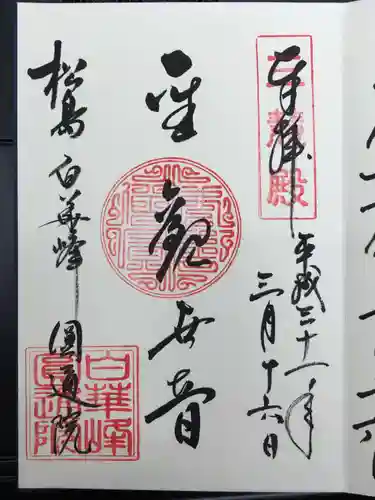 奉拝
三慧殿
平成三十一年
三月十六日
聖観世音
松島 白華峰 圓通院
白華峰
圓通院